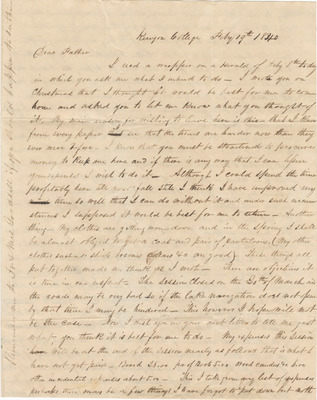 Kenyon College Feby 19th 1840
Dear Father
I used a wrapper on a Herald of Feby 8th to day
in which you ask me what I intend to do – I wrote you on
Christmas that I thought it would be best for me to come
home and asked you to let me know what you thought of
it. My main reason for wishing to leave here is this – that I know
from every paper I see that the times are harder now than they
ever were before. I know that you must be straitened to procure
money to keep me here and if there is any way that I can
yourself I wish to do it – Although I could spend the time
profitably here till next fall still I think I have improved my
time so well that I can do without it and under such circum
stances I supposed it would be best for me to return – Another
thing – My clothes are getting worn down, and in the Spring I shall
be almost obliged to get a coat and pair of pantaloons (My other
clothes such as shirts socks &c are good) These things all
put together made me think as I wish – There are objections it
is true in one respect – The Session closes on the 30th of March
the roads may be very bad so if the Lake navigation does not open
by that time I may be hindered – This however I hope will not
be the case – Now I wish you in your next letter to tell me just
what you think it is best for me to do – My expenses this Session
will be at the end of the Session nearly as follows that is what I
have not got paid – Board
incidental expenses about two – This I take you my list of expenses
perhaps there may be a few things I have forgot to put down but not